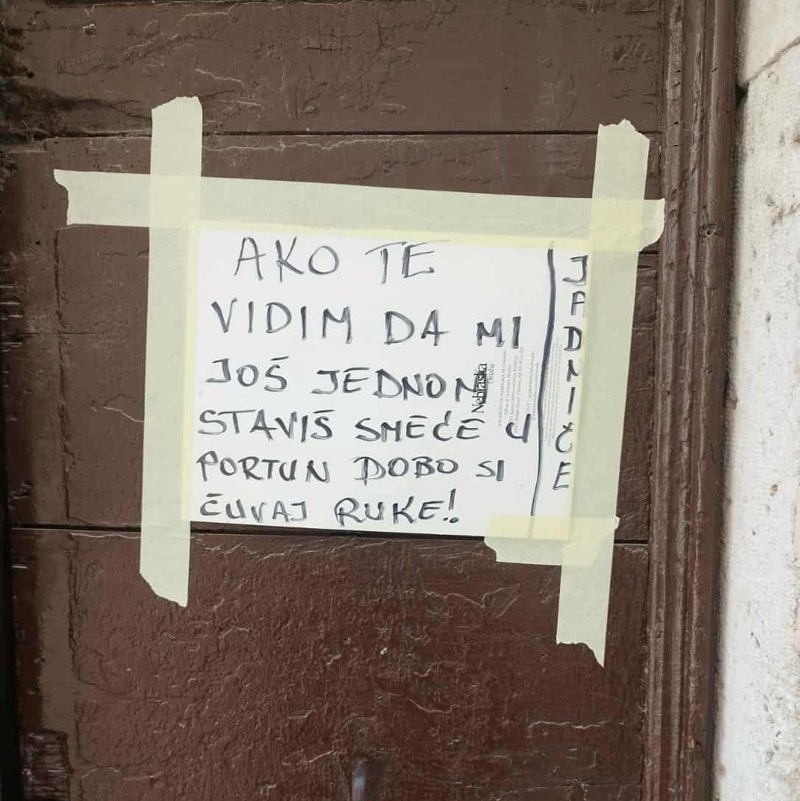 AKO TE
VIDIM DA MI
JOŠ JEDNOM
STAVIŠ SMEĆE U
PORTUN DOBO SI
ČUVAJ RUKE!
JADNIČE
Nebraska